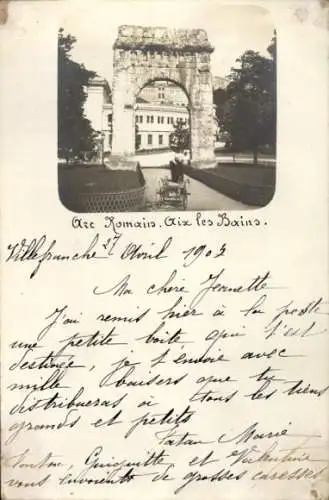 Arc Romain. Aix les Bains.
Villefranche 27 Avril 1902
Ma chère Jeannette
J'ai remis hier à la poste
une petite boite qui t'est
destinée, je t'envoie avec
mille baisers que tu
distribueras à tous les tiens
grands et petits
Tatan Marie
Tonton, Guiguitte et Valentine
vous envoient de grosses caresses